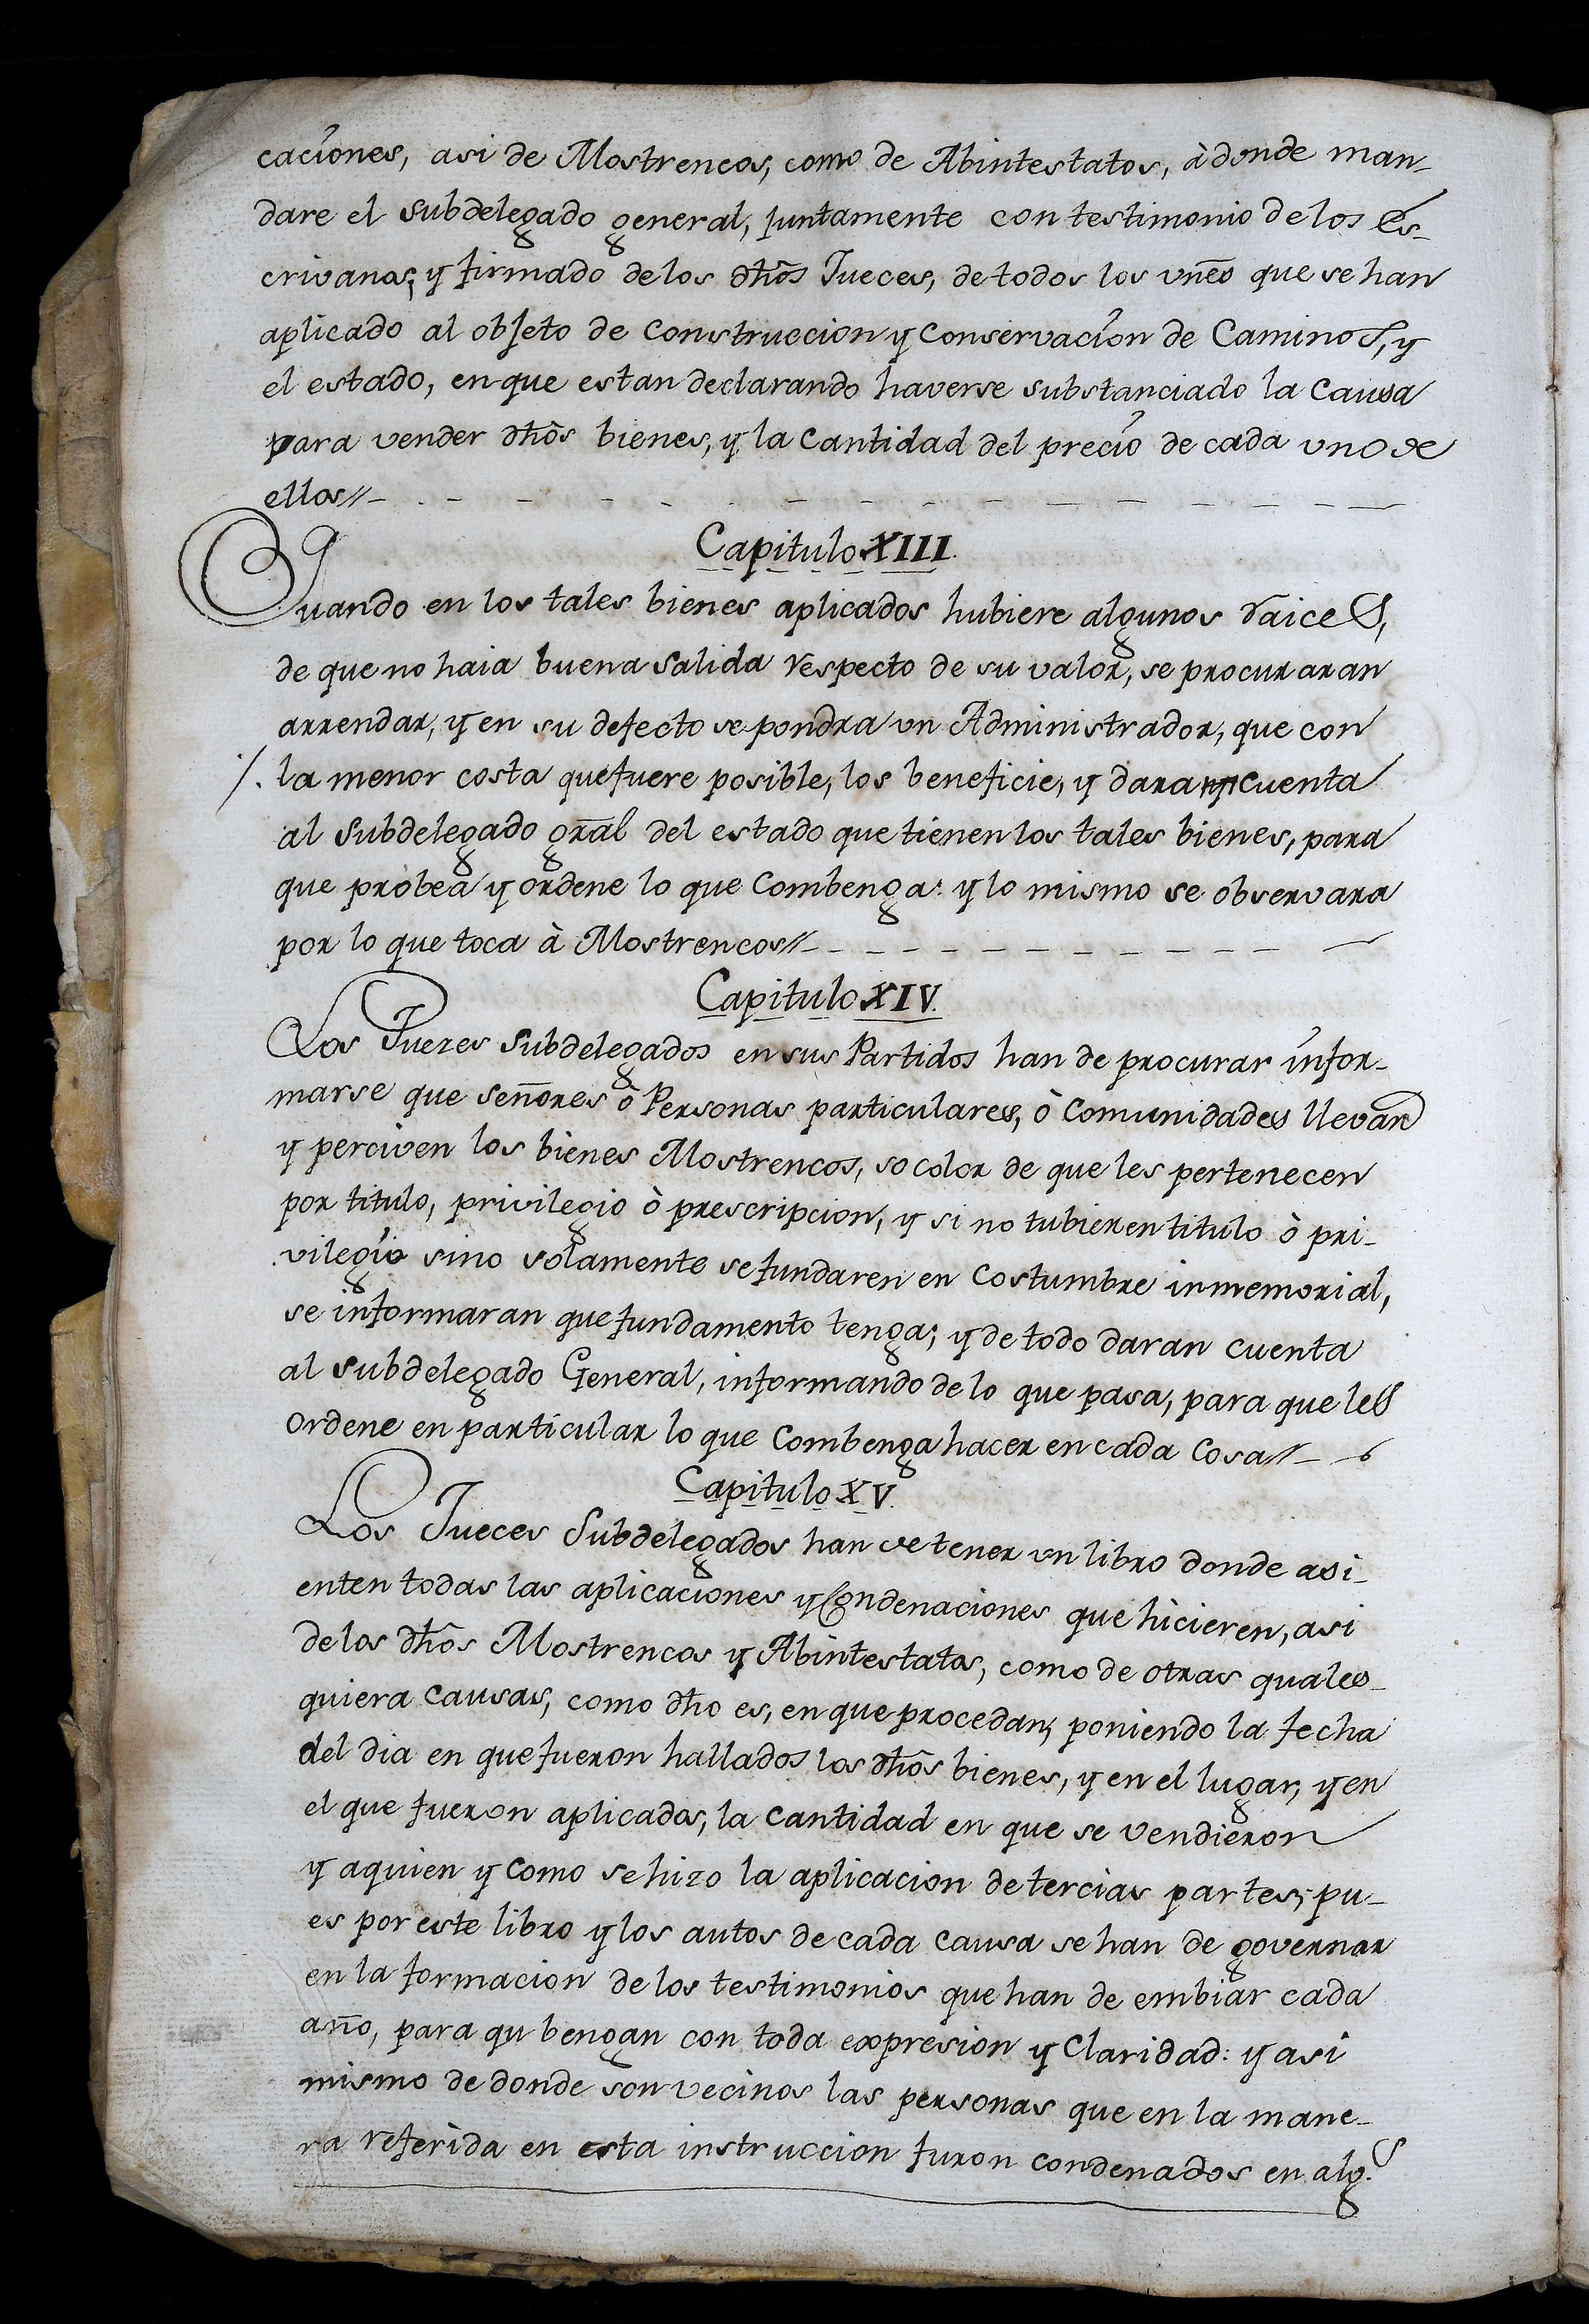 caciones, asi de Mostrencos, como de Abintestatos, à donde man-
dare el subdelegado general, juntamente con testimonio de los Es-
crivanos; y firmado de los dhõs Jueces, de todos los vnẽs que se han
aplicado al objeto de construccion y conservacion de Caminos, y
el estado, en que estan declarando haverse substanciado la causa
para vender dhõs bienes, y la cantidad del precio de cada uno de
ellos//-
Capitulo XIII.
Quando en los tales bienes aplicados hubiere algunos raices,
de que no haia buena salida respecto de su valor, se procuraran
arrendar, y en su defecto se pondra un Administrador, que con
/. la menor costa que fuere posible, los beneficie, y dara cuenta
al subdelegado grãl del estado que tienen los tales bienes, para
que probea y ordene lo que combenga: y lo mismo se observara
por lo que toca à Mostrencos//-
Capitulo XIV.
Los Juezes subdelegados en sus Partidos han de procurar infor-
marse que señores ò Personas particulares, ò comunidades llevan
y perciven los bienes Mostrencos, so color de que les pertenecen
por titulo, privilegio ò prescripcion, y si no tubieren titulo ò pri-
vilegio sino solamente se fundaren en costumbre inmemorial,
se informaran que fundamento tenga; y de todo daran cuenta
al subdelegado General, informando de lo que pasa, para que les
ordene en particular lo que combenga hacer en cada cosa//-
Capitulo XV.
Los Jueces Subdelegados han de tener un libro donde asi-
enten todas las aplicaciones y Condenaciones que hicieren, asi
de los dhõs Mostrencos y Abintestatos, como de otras quales-
quiera causas, como dho es, en que procedan; poniendo la fecha
del dia en que fueron hallados los dhõs bienes, y en el lugar, y en
el que fueron aplicados, la cantidad en que se vendieron
y aquien y como se hizo la aplicacion de tercias partes; pu-
es por este libro y los autos de cada causa se han de governar
en la formacion de los testimonios que han de embiar cada
año, para qu bengan con toda expresion y claridad: y asi
mismo de donde son vecinos las personas que en la mane-
ra referida en esta instruccion furon condenados en alg.s